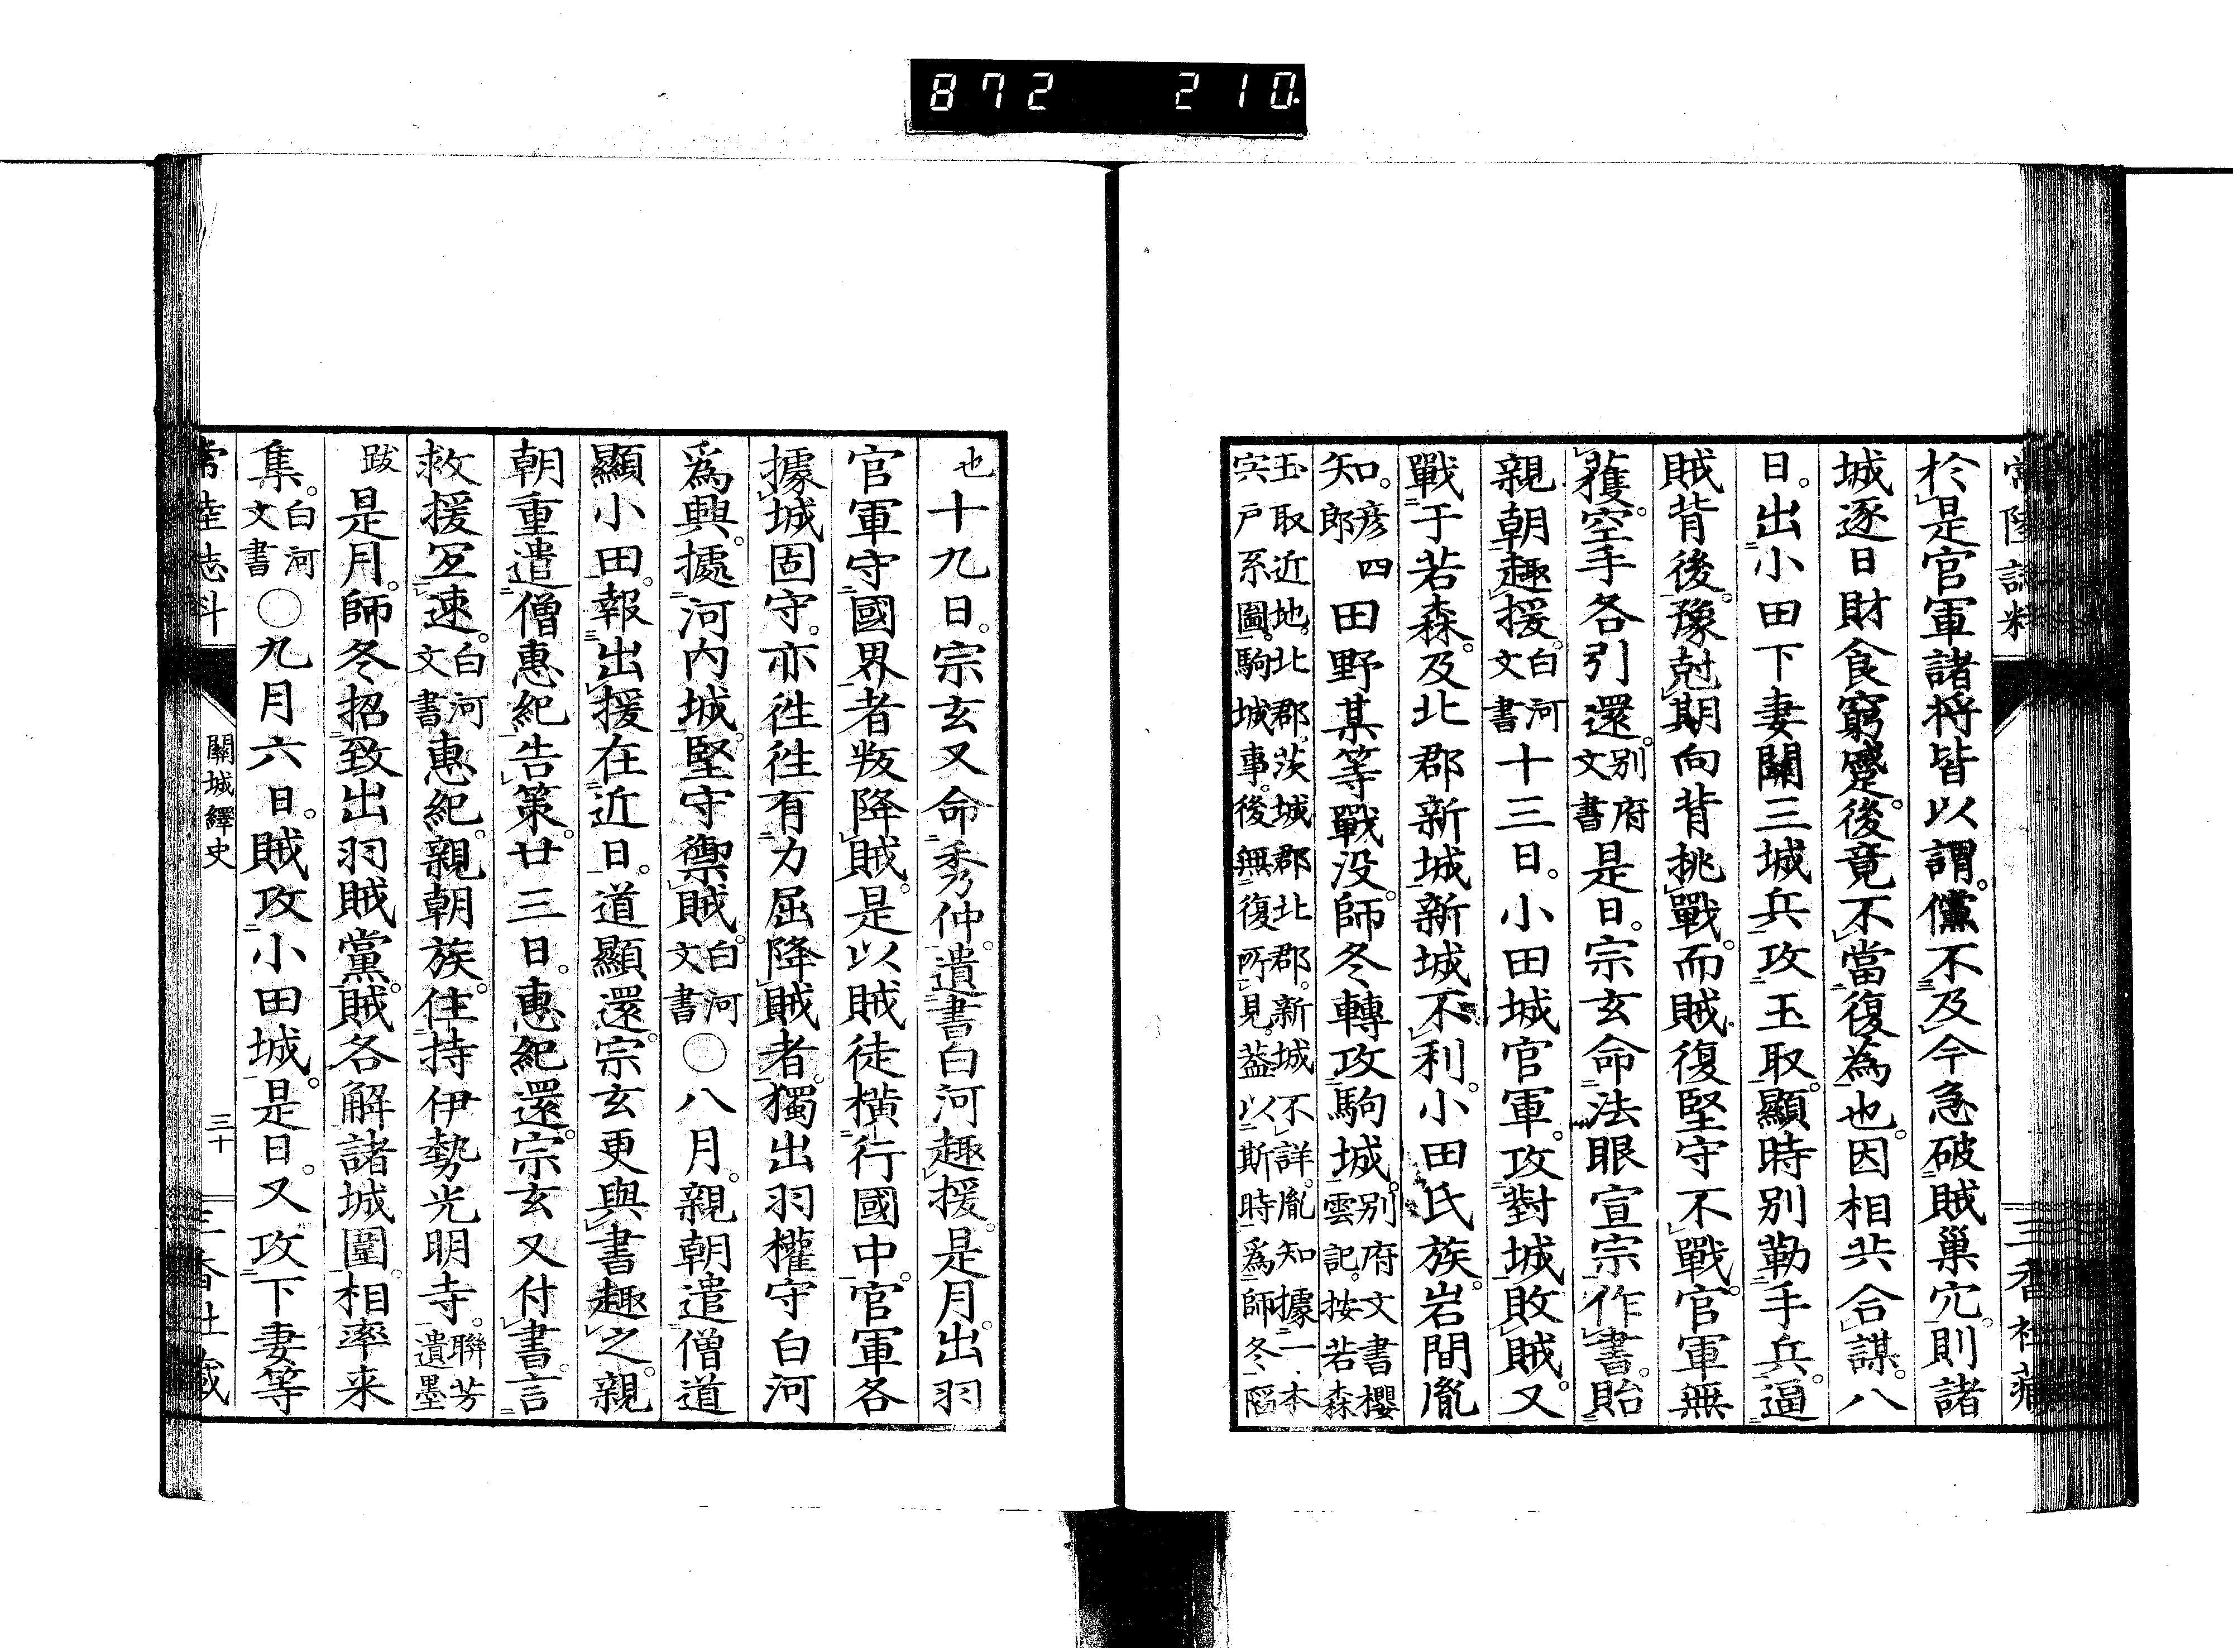 872 210.
於是官軍諸将皆以謂。儻不及今急破賊巢穴。則諸
城逐日財食窮蹙。後竟不當復為也。因相共合謀。八
日。出小田下妻關三城兵。攻玉取。顯時別勒手兵。逼
賊背後。豫尅期向背挑戰。而賊復堅守不戰。官軍無
獲。空手各引還。別府文書是日。宗玄命法眼宣宗作書。貽
親朝趣援。白河文書十三日。小田城官軍。攻對城敗賊。又
戰于若森。及北郡新城。新城不利。小田氏族。岩間胤
知。彦四郎田野某等戰没。師冬轉攻駒城。別府文書櫻雲記。按若森
玉取近地。北郡。茨城郡北郡。新城不詳。胤知據一本
宍戸系圖。駒城事。後無復所見。蓋以斯時為師冬陷
也十九日。宗玄又命秀仲。遺書白河趣援。是月。出羽
官軍守國界者叛降賊。是以賊徒橫行國中。官軍各
據城固守。亦徃徃有力屈降賊者。獨出羽權守白河
為興。據河内城。堅守禦賊。白河文書○八月。親朝遣僧道
顯小田。報出援在近日。道顯還。宗玄更與書趣之。親
朝重遣僧惠紀告策。廿三日。惠紀還。宗玄又付書。言
救援冝速。白河文書惠紀。親朝族。住持伊勢光明寺。聯芳遺墨
跋是月。師冬招致出羽賊黨。賊各解諸城圍。相率来
集。白河文書○九月六日。賊攻小田城。是日。又攻下妻等
關城繹史
三十